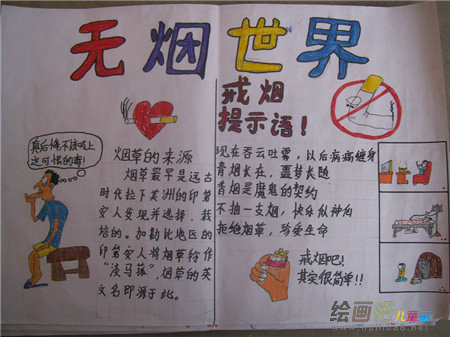 无烟世界
真后悔不该吸上
这可恨的毒!
烟草的来源
烟草最早是远古
时代拉下美洲的印第
安人发现并选择、栽
培的。加勒比地区的
印第安人将烟草称作
“淡马菰”,烟草的英
文名即源于此。
戒烟
提示语!
现在吞云吐雾,以后病痛缠身
青烟长在,噩梦长随
香烟是魔鬼的契约
不抽一支烟,快乐似神仙
拒绝烟草,珍爱生命
戒烟吧!
其实很简单!!
绘画吧儿童画